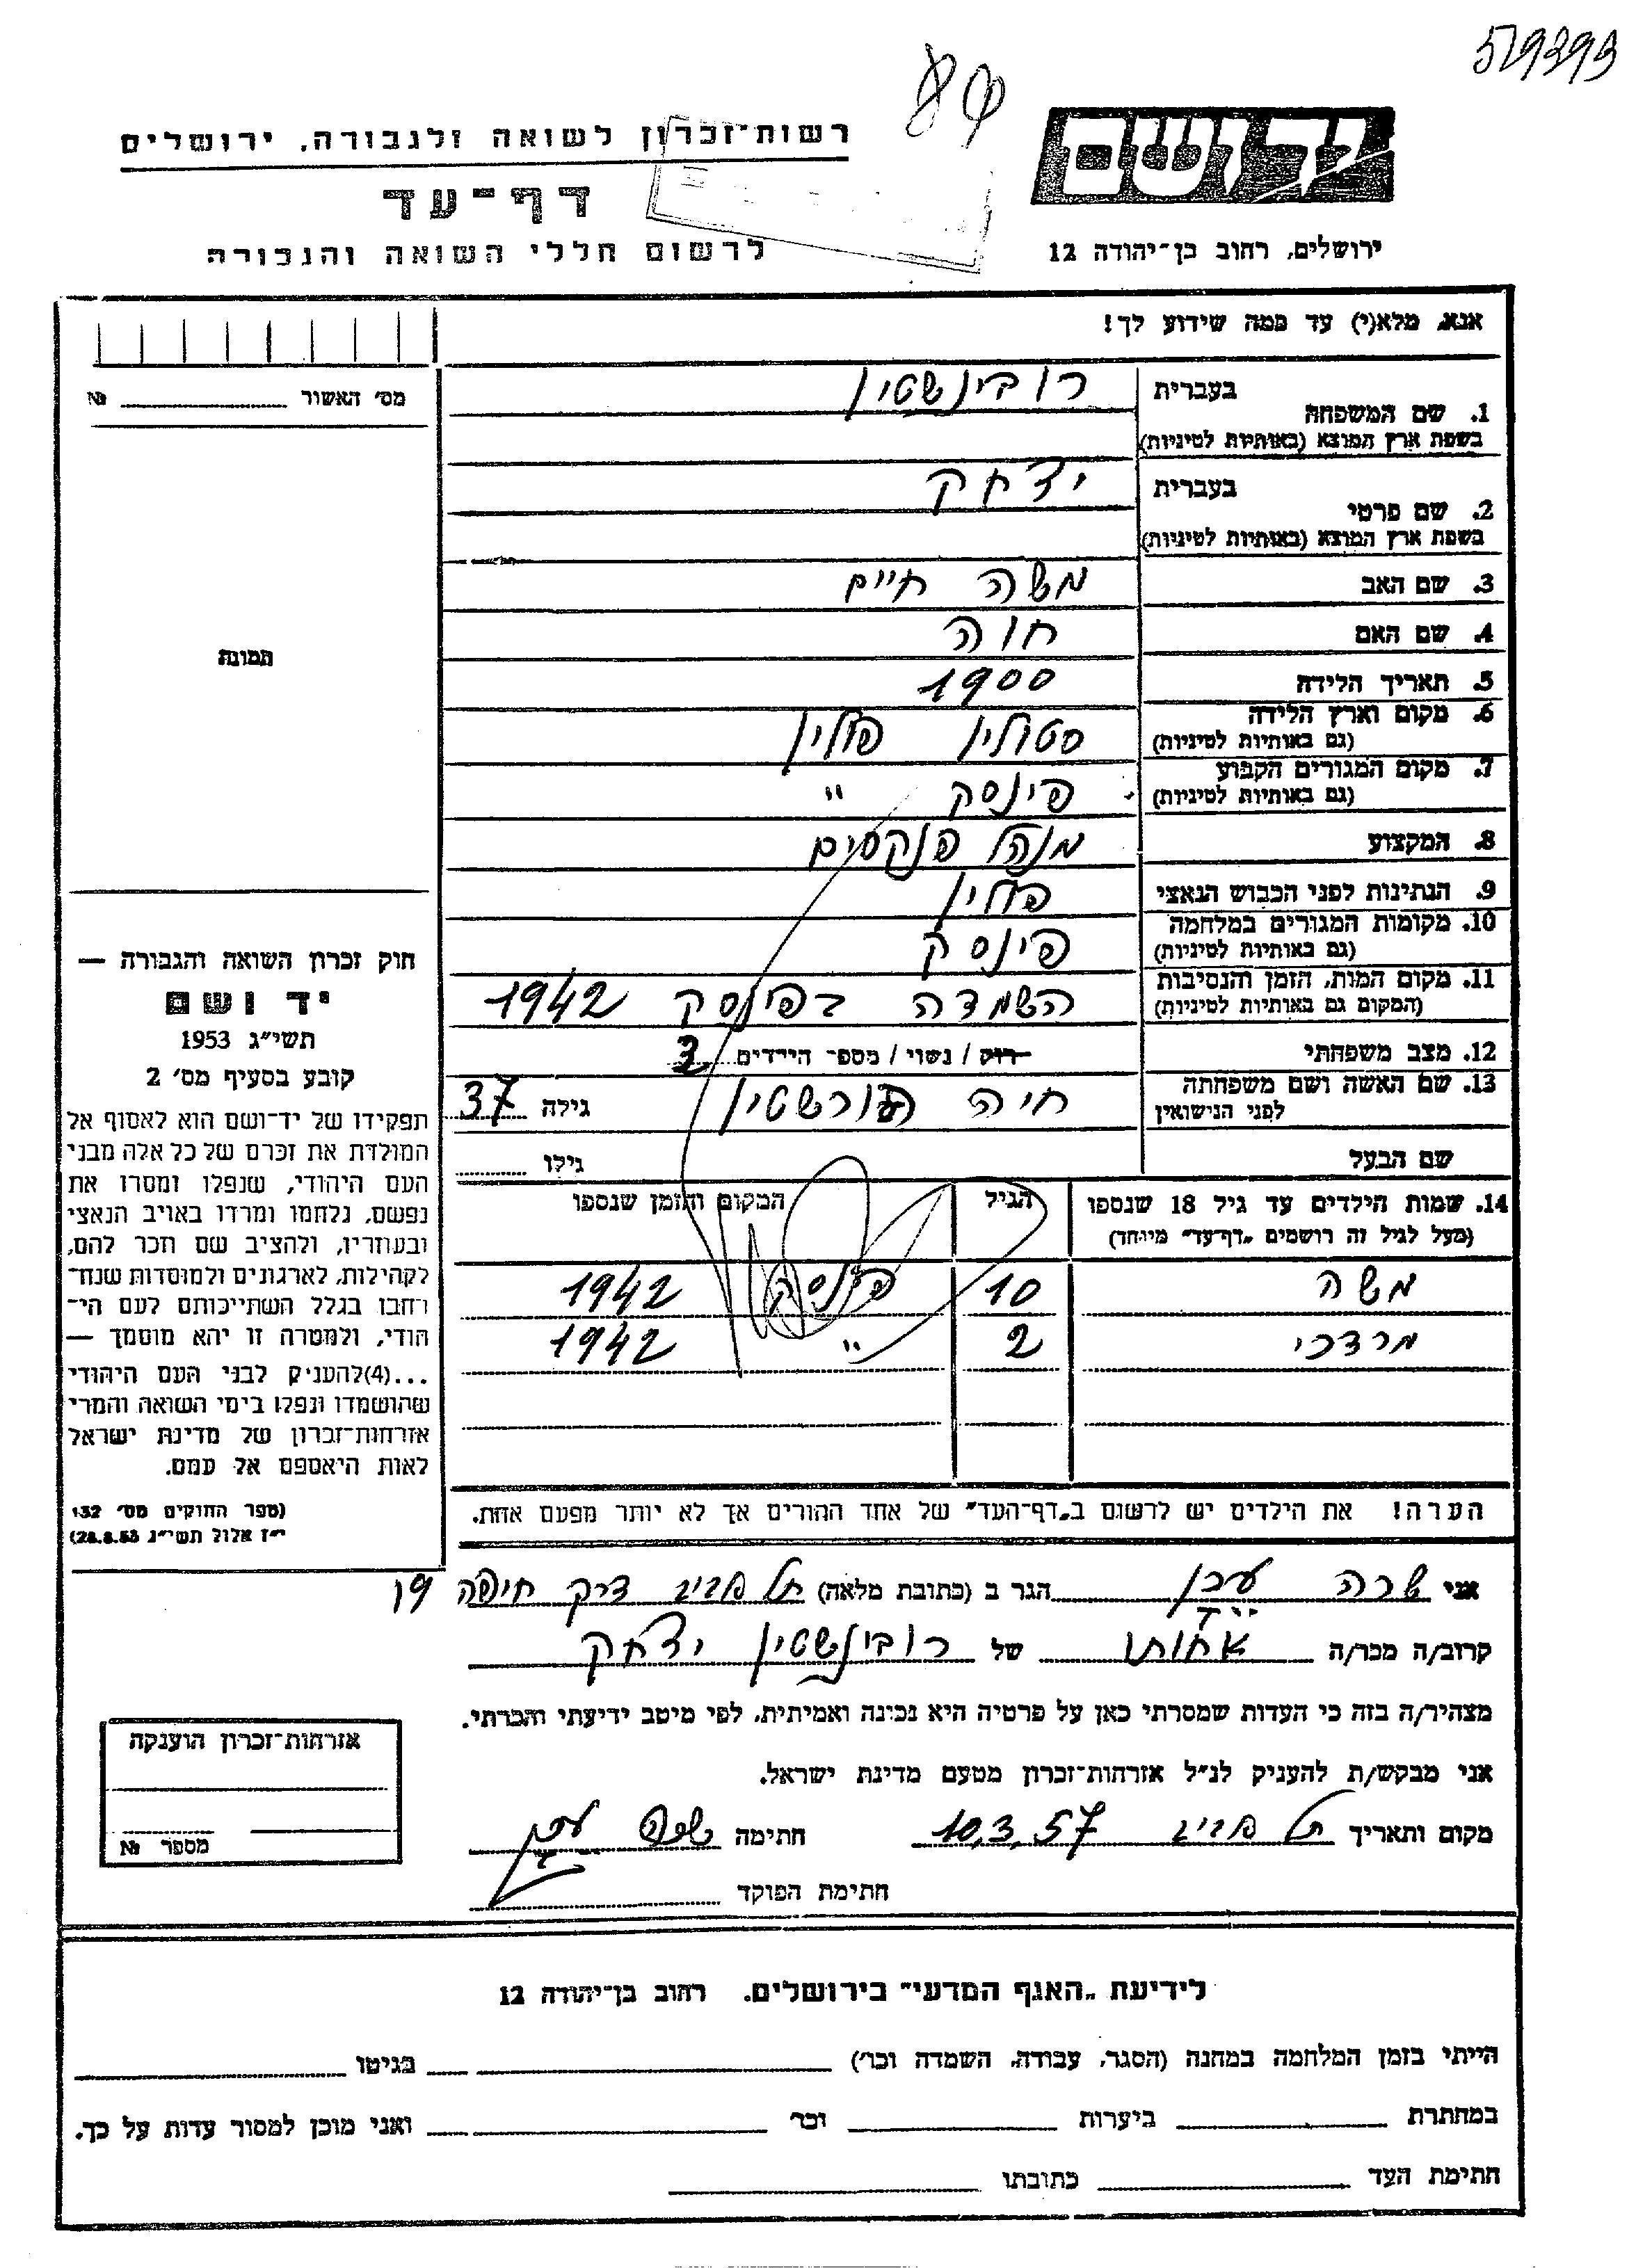 519393
84
יד ושם
רשות־זכרון לשואה ולגבורה, ירושלים
דף־עד
לרשום חללי השואה והגבורה
ירושלים, רחוב בן־יהודה 12
אנא, מלא(י) עד כמה שידוע לך!
מס׳ האשור № 
1. שם המשפחה בעברית רובינשטין
בשפת ארץ המוצא (באותיות לטיניות)
2. שם פרטי בעברית יצחק
בשפת ארץ המוצא (באותיות לטיניות)
3. שם האב משה חיים
4. שם האם חוה
5. תאריך הלידה 1900
6. מקום וארץ הלידה סטולין פולין
(גם באותיות לטיניות)
7. מקום המגורים הקבוע פינסק "
(גם באותיות לטיניות)
8. המקצוע מנהל פנקסים
9. הנתינות לפני הכבוש הנאצי פולין
10. מקומות המגורים במלחמה פינסק
(גם באותיות לטיניות)
11. מקום המות, הזמן והנסיבות השמדה בפינסק 1942
(המקום גם באותיות לטיניות)
12. מצב משפחתי רוק / נשוי / מספר הילדים
13. שם האשה ושם משפחתה חיה גילה 37
לפני הנישואין
שם הבעל גילו
14. שמות הילדים עד גיל 18 שנספו הגיל המקום והזמן שנספו
(מעל לגיל זה רושמים „דף־עד" מיוחד)
משה 10 פינסק 1942
מרדכי 2 " 1942
הערה! את הילדים יש לרשום ב„דף־העד" של אחד ההורים אך לא יותר מפעם אחת.
תמונה
חוק זכרון השואה והגבורה —
יד ושם
תשי״ג 1953
קובע בסעיף מס׳ 2
תפקידו של יד־ושם הוא לאסוף אל
המולדת את זכרם של כל אלה מבני
העם היהודי, שנפלו ומסרו את
נפשם, נלחמו ומרדו באויב הנאצי
ובעוזריו, ולהציב שם וזכר להם,
לקהילות, לארגונים ולמוסדות שנח־
רחבו בגלל השתייכותם לעם הי־
הודי, ולמטרה זו יהא מוסמך —
...(4)להעניק לבני העם היהודי
שהושמדו ונפלו בימי השואה והמרי
אזרחות־זכרון של מדינת ישראל
לאות היאספם אל עמם.
(ספר החוקים מס׳ 132
י״ז אלול תשי״ג 28.8.53)
אני שרה הגר ב (כתובת מלאה) תל אביב דרך חיפה 19
קרוב/ה מכר/ה אחותו של רובינשטין יצחק
מצהיר/ה בזה כי העדות שמסרתי כאן על פרטיה היא נכונה ואמיתית, לפי מיטב ידיעתי והכרתי.
אני מבקש/ת להעניק לנ״ל אזרחות־זכרון מטעם מדינת ישראל.
מקום ותאריך תל אביב 10.3.57 חתימה שרה
חתימת הפוקד
אזרחות־זכרון הוענקה
מספר №
לידיעת „האגף המדעי" בירושלים. רחוב בן־יהודה 12
הייתי בזמן המלחמה במחנה (הסגר, עבודה, השמדה וכו׳) בגיטו
במחתרת ביערות וכו׳ ואני מוכן למסור עדות על כך.
חתימת העד כתובתו